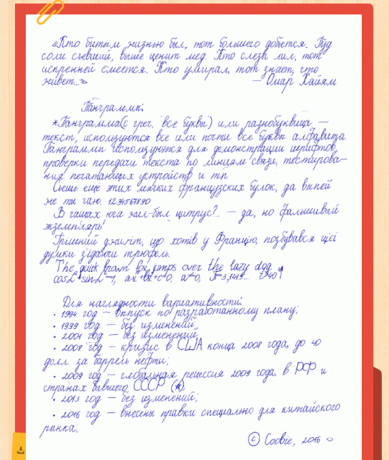 «Кто битым жизнью был, тот большего добьется. Пуд
соли съевший, выше ценит мёд. Кто слёзы лил, тот
искренней смеется. Кто умирал, тот знает, что
живёт.»
— Омар Хайям
Панграммы.
*Панграмма(с греч. "все буквы) или разнобуквица —
текст, используются все или почти все буквы алфавита.
Панграммы используются для демонстрации шрифтов,
проверки передачи текста по линиям связи, тестирова-
ния печатающих устройств и т.п.
Съешь ещё этих мягких французских булок, да выпей
же ты чаю. 1234567890
В чащах юга жил-был цитрус? — да, но фальшивый
экземпляръ!
The quick brown fox jumps over the lazy dog
Для наглядности вариативности:
• 1994 год — выпуск по разработанному плану;
• 1999 год — без изменений;
• 2001 год — без изменений;
• 2008 год — кризис в США конца 2008 года, до 40
долл. за баррель нефти;
• 2009 год — глобальная рецессия 2009 года. в РФ и
странах бывшего СССР
• 2013 год — без изменений;
• 2016 год — внесены правки специально для китайского
рынка.
2016